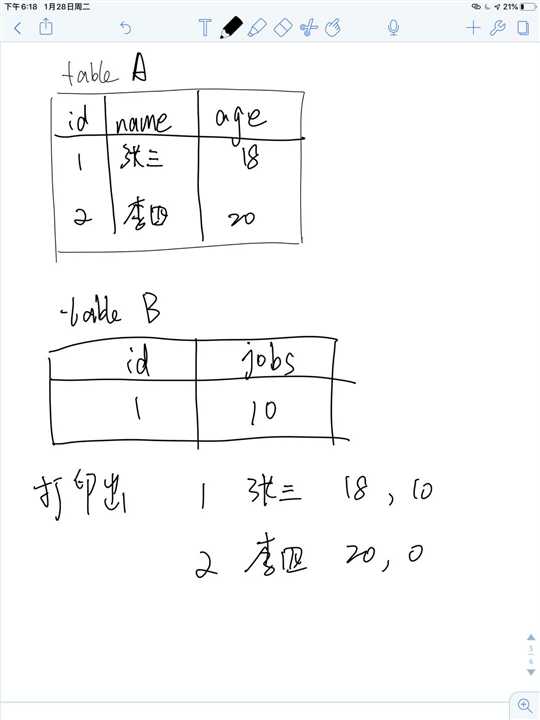 下午6:18 1月28日周二 21%
T
table A
id name age
1 张三 18
2 李四 20
table B
id jobs
1 10
打印出 1 张三 18 , 10
2 李四 20 , 0
5
6